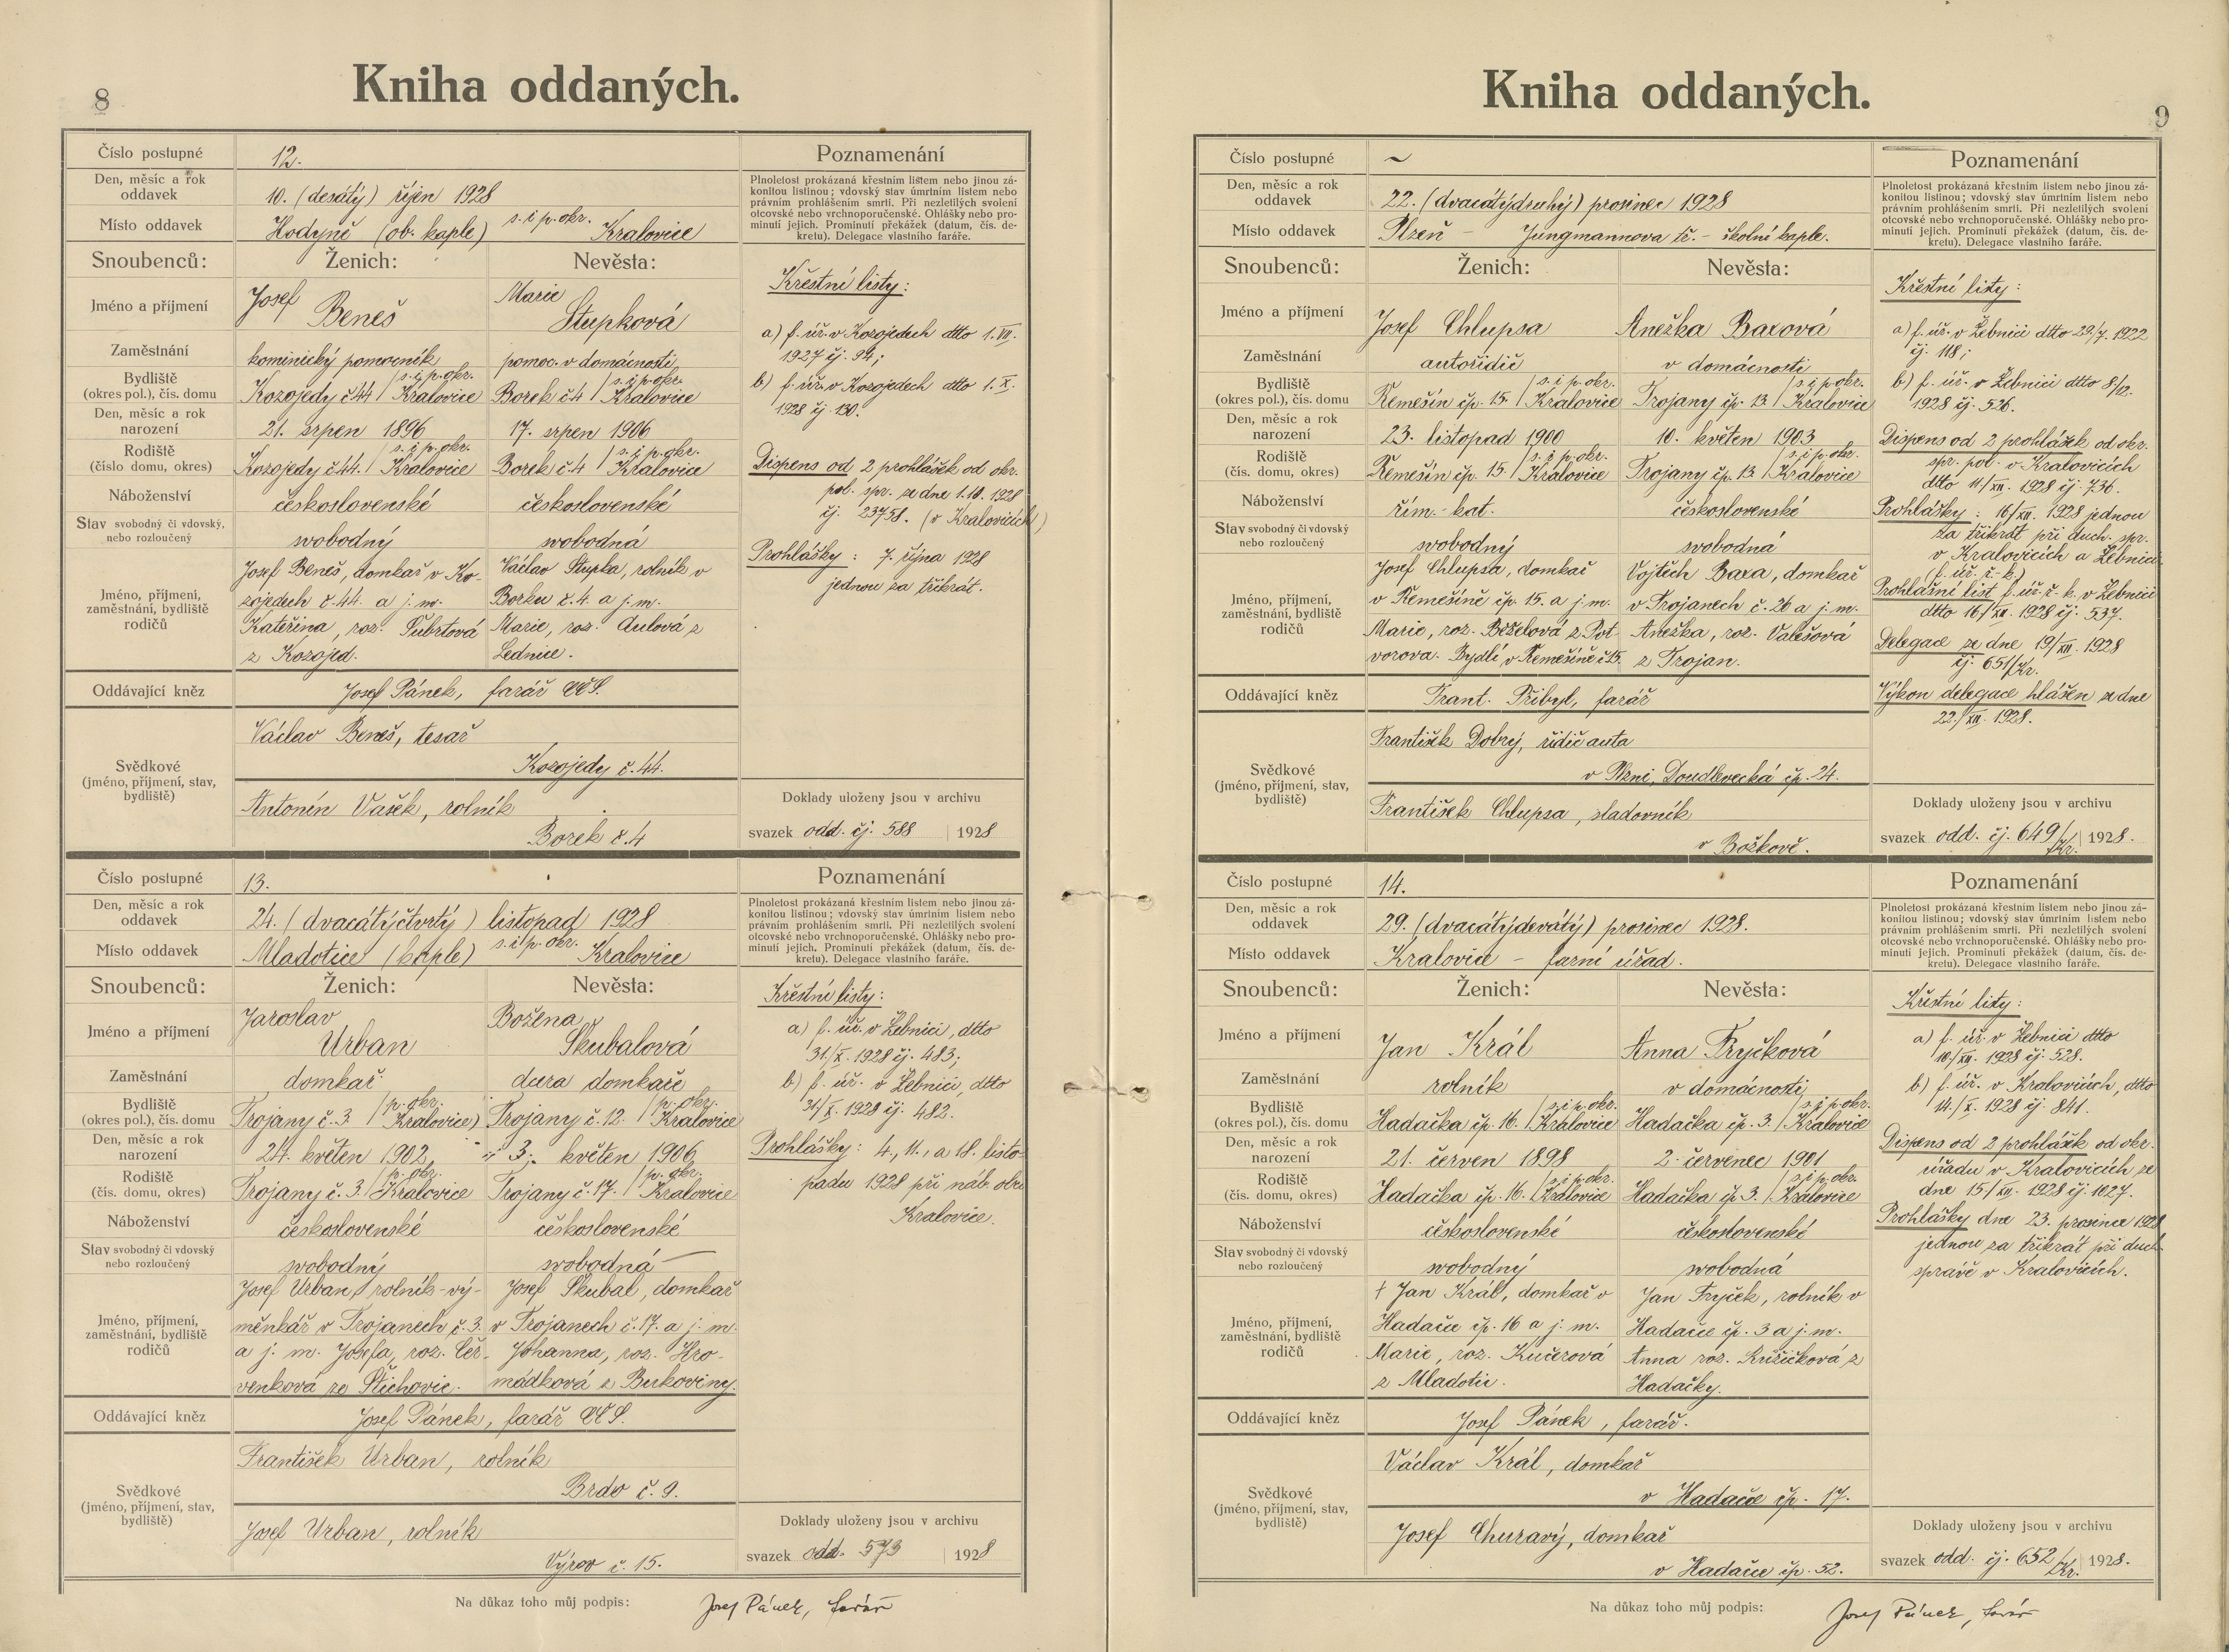 8
Kniha oddaných.
Číslo postupné 12.
Den, měsíc a rok oddavek 10. (desátý) říjen 1928
Místo oddavek Hodyně (ob. kaple) s. i p. okr. Kralovice
Poznamenání
Plnoletost prokázaná křestním listem nebo jinou zá-
konitou listinou; vdovský stav úmrtním listem nebo
právním prohlášením smrti. Při nezletilých svolení
otcovské nebo vrchnoporučenské. Ohlášky nebo pro-
minutí jejich. Prominutí překážek (datum, čís. de-
kretu). Delegace vlastního faráře.
Snoubenců: Ženich: Nevěsta:
Jméno a příjmení Josef Beneš Marie Stupková
Zaměstnání kominický pomocník pomoc. v domácnosti
Bydliště (okres pol.), čís. domu Kozojedy č 44 / s. i p. okr. Kralovice Borek č 4 / s. i p. okr. Kralovice
Den, měsíc a rok narození 21. srpen 1896 17. srpen 1906
Rodiště (číslo domu, okres) Kozojedy č 44. / s. i p. okr. Kralovice Borek č. 4 / s. i p. okr. Kralovice
Náboženství československé československé
Stav svobodný či vdovský, nebo rozloučený svobodný svobodná
Jméno, příjmení, zaměstnání, bydliště rodičů
Josef Beneš, domkař v Ko-
zojedech č. 44. a j. m.
Kateřina, roz. Šubrtová
z Kozojed.
Václav Stupka, rolník v
Borku č. 4. a j. m.
Marie, roz. Aulová z
Lednice.
Oddávající kněz Josef Pánek, farář CČS.
Svědkové (jméno, příjmení, stav, bydliště)
Václav Beneš, tesař
Kozojedy č. 44.
Antonín Vašek, rolník
Borek č. 4
Křestní listy:
a) f. úř. v Kozojedech dtto 1. VII.
1927 čj. 94;
b) f. úř. v Kozojedech dtto 1. X.
1928 čj. 130.
Dispens od 2 prohlášek od okr.
pol. spr. ze dne 1. 10. 1928
čj. 23758. (v Kralovicích)
Prohlášky: 7. října 1928
jednou za třikrát.
Doklady uloženy jsou v archivu
svazek odd. čj. 588 1928
Číslo postupné 13.
Den, měsíc a rok oddavek 24. (dvacátýčtvrtý) listopad 1928
Místo oddavek Mladotice (kaple) s. i p. okr. Kralovice
Poznamenání
Plnoletost prokázaná křestním listem nebo jinou zá-
konitou listinou; vdovský stav úmrtním listem nebo
právním prohlášením smrti. Při nezletilých svolení
otcovské nebo vrchnoporučenské. Ohlášky nebo pro-
minutí jejich. Prominutí překážek (datum, čís. de-
kretu). Delegace vlastního faráře.
Snoubenců: Ženich: Nevěsta:
Jméno a příjmení Jaroslav Urban Božena Škubalová
Zaměstnání domkař dcera domkaře
Bydliště (okres pol.), čís. domu Trojany č. 3. / p. okr. Kralovice) Trojany č. 12. / p. okr. Kralovice
Den, měsíc a rok narození 24. květen 1902 3. květen 1906
Rodiště (čís. domu, okres) Trojany č. 3. / p. okr. Kralovice Trojany č. 17. / p. okr. Kralovice
Náboženství československé československé
Stav svobodný či vdovský nebo rozloučený svobodný svobodná
Jméno, příjmení, zaměstnání, bydliště rodičů
Josef Urban, rolník-vý-
měnkář v Trojanech č. 3.
a j. m. Josefa, roz. Čer-
venková ze Štichovic.
Josef Škubal, domkař
v Trojanech č. 17. a j. m.
Johanna, roz. Hro-
mádková z Bukoviny.
Oddávající kněz Josef Pánek, farář CČS.
Svědkové (jméno, příjmení, stav, bydliště)
František Urban, rolník
Brdo č. 9.
Josef Urban, rolník
Výrov č. 15.
Křestní listy:
a) f. úř. v Žebnici, dtto
31./X. 1928 čj. 483;
b) f. úř. v Žebnici, dtto
31/X. 1928 čj. 482.
Prohlášky: 4., 11., a 18. listo-
padu 1928 při náb. obci
Kralovice.
Doklady uloženy jsou v archivu
svazek odd. 573 1928
Na důkaz toho můj podpis: Josef Pánek, farář
9
Kniha oddaných.
Číslo postupné ~
Den, měsíc a rok oddavek 22. (dvacátýdruhý) prosinec 1928
Místo oddavek Plzeň - Jungmannova tř. - školní kaple.
Poznamenání
Plnoletost prokázaná křestním listem nebo jinou zá-
konitou listinou; vdovský stav úmrtním listem nebo
právním prohlášením smrti. Při nezletilých svolení
otcovské nebo vrchnoporučenské. Ohlášky nebo pro-
minutí jejich. Prominutí překážek (datum, čís. de-
kretu). Delegace vlastního faráře.
Snoubenců: Ženich: Nevěsta:
Jméno a příjmení Josef Chlupsa Anežka Baxová
Zaměstnání autořidič v domácnosti
Bydliště (okres pol.), čís. domu Řemešín čp. 15. / s. i p. okr. Kralovice Trojany čp. 13. / s. i p. okr. Kralovice
Den, měsíc a rok narození 23. listopad 1900 10. květen 1903
Rodiště (čís. domu, okres) Řemešín čp. 15. / s. i p. okr. Kralovice Trojany čp. 13. / s. i p. okr. Kralovice
Náboženství řím. kat. československé
Stav svobodný či vdovský nebo rozloučený svobodný svobodná
Jméno, příjmení, zaměstnání, bydliště rodičů
Josef Chlupsa, domkař
v Řemešíně čp. 15. a j. m.
Marie, roz. Bešelová z Pot-
vorova. Bydlí v Řemešíně č 15.
Vojtěch Baxa, domkař
v Trojanech č. 26 a j. m.
Anežka, roz. Valešová
z Trojan.
Oddávající kněz Frant. Přibyl, farář
Svědkové (jméno, příjmení, stav, bydliště)
František Dobrý, řidič auta
v Plzni, Doudlevecká čp. 24.
František Chlupsa, sladovník
v Božkově.
Křestní listy:
a) f. úř. v Žebnici dtto 29/7. 1922
čj. 118;
b) f. úř. v Žebnici dtto 8/12.
1928 čj. 526.
Dispens od 2 prohlášek od okr.
spr. pol. v Kralovicích
dtto 11/XII. 1928 čj. 736.
Prohlášky: 16/XII. 1928 jednou
za třikrát při duch. spr.
v Kralovicích a Žebnici
(f. úř. ř.-k.)
Prohlášní list f. úř. ř. k. v Žebnici
dtto 16/XII. 1928 čj. 537.
Delegace ze dne 19/XII. 1928
čj. 651/Kr.
Výkon delegace hlášen ze dne
22./XII. 1928.
Doklady uloženy jsou v archivu
svazek odd. čj. 649/Kr. 1928.
Číslo postupné 14.
Den, měsíc a rok oddavek 29. (dvacátýdevátý) prosinec 1928.
Místo oddavek Kralovice - farní úřad.
Poznamenání
Plnoletost prokázaná křestním listem nebo jinou zá-
konitou listinou; vdovský stav úmrtním listem nebo
právním prohlášením smrti. Při nezletilých svolení
otcovské nebo vrchnoporučenské. Ohlášky nebo pro-
minutí jejich. Prominutí překážek (datum, čís. de-
kretu). Delegace vlastního faráře.
Snoubenců: Ženich: Nevěsta:
Jméno a příjmení Jan Král Anna Fryčková
Zaměstnání rolník v domácnosti
Bydliště (okres pol.), čís. domu Hadačka čp. 16. / s. i p. okr. Kralovice Hadačka čp. 3. / s. i p. okr. Kralovice
Den, měsíc a rok narození 21. červen 1898 2. červenec 1901
Rodiště (čís. domu, okres) Hadačka čp. 16. / s. i p. okr. Kralovice Hadačka čp. 3. / s. i p. okr. Kralovice
Náboženství československé československé
Stav svobodný či vdovský nebo rozloučený svobodný svobodná
Jméno, příjmení, zaměstnání, bydliště rodičů
† Jan Král, domkař v
Hadačce čp. 16 a j. m.
Marie, roz. Kučerová
z Mladotic.
Jan Fryček, rolník v
Hadačce čp. 3 a j. m.
Anna roz. Růžičková z
Hadačky.
Oddávající kněz Josef Pánek, farář.
Svědkové (jméno, příjmení, stav, bydliště)
Václav Král, domkař
v Hadačce čp. 17.
Josef Churavý, domkař
v Hadačce čp. 52.
Křestní listy:
a) f. úř. v Žebnici dtto
10./XII. 1928 čj. 528.
b) f. úř. v Kralovicích, dtto
14./X. 1928 čj. 841.
Dispens od 2 prohlášek od okr.
úřadu v Kralovicích ze
dne 15./XII. 1928 čj. 1027.
Prohlášky dne 23. prosince 1928
jednou za třikrát při duch.
správě v Kralovicích.
Doklady uloženy jsou v archivu
svazek odd. čj. 652/Kr. 1928.
Na důkaz toho můj podpis: Josef Pánek, farář